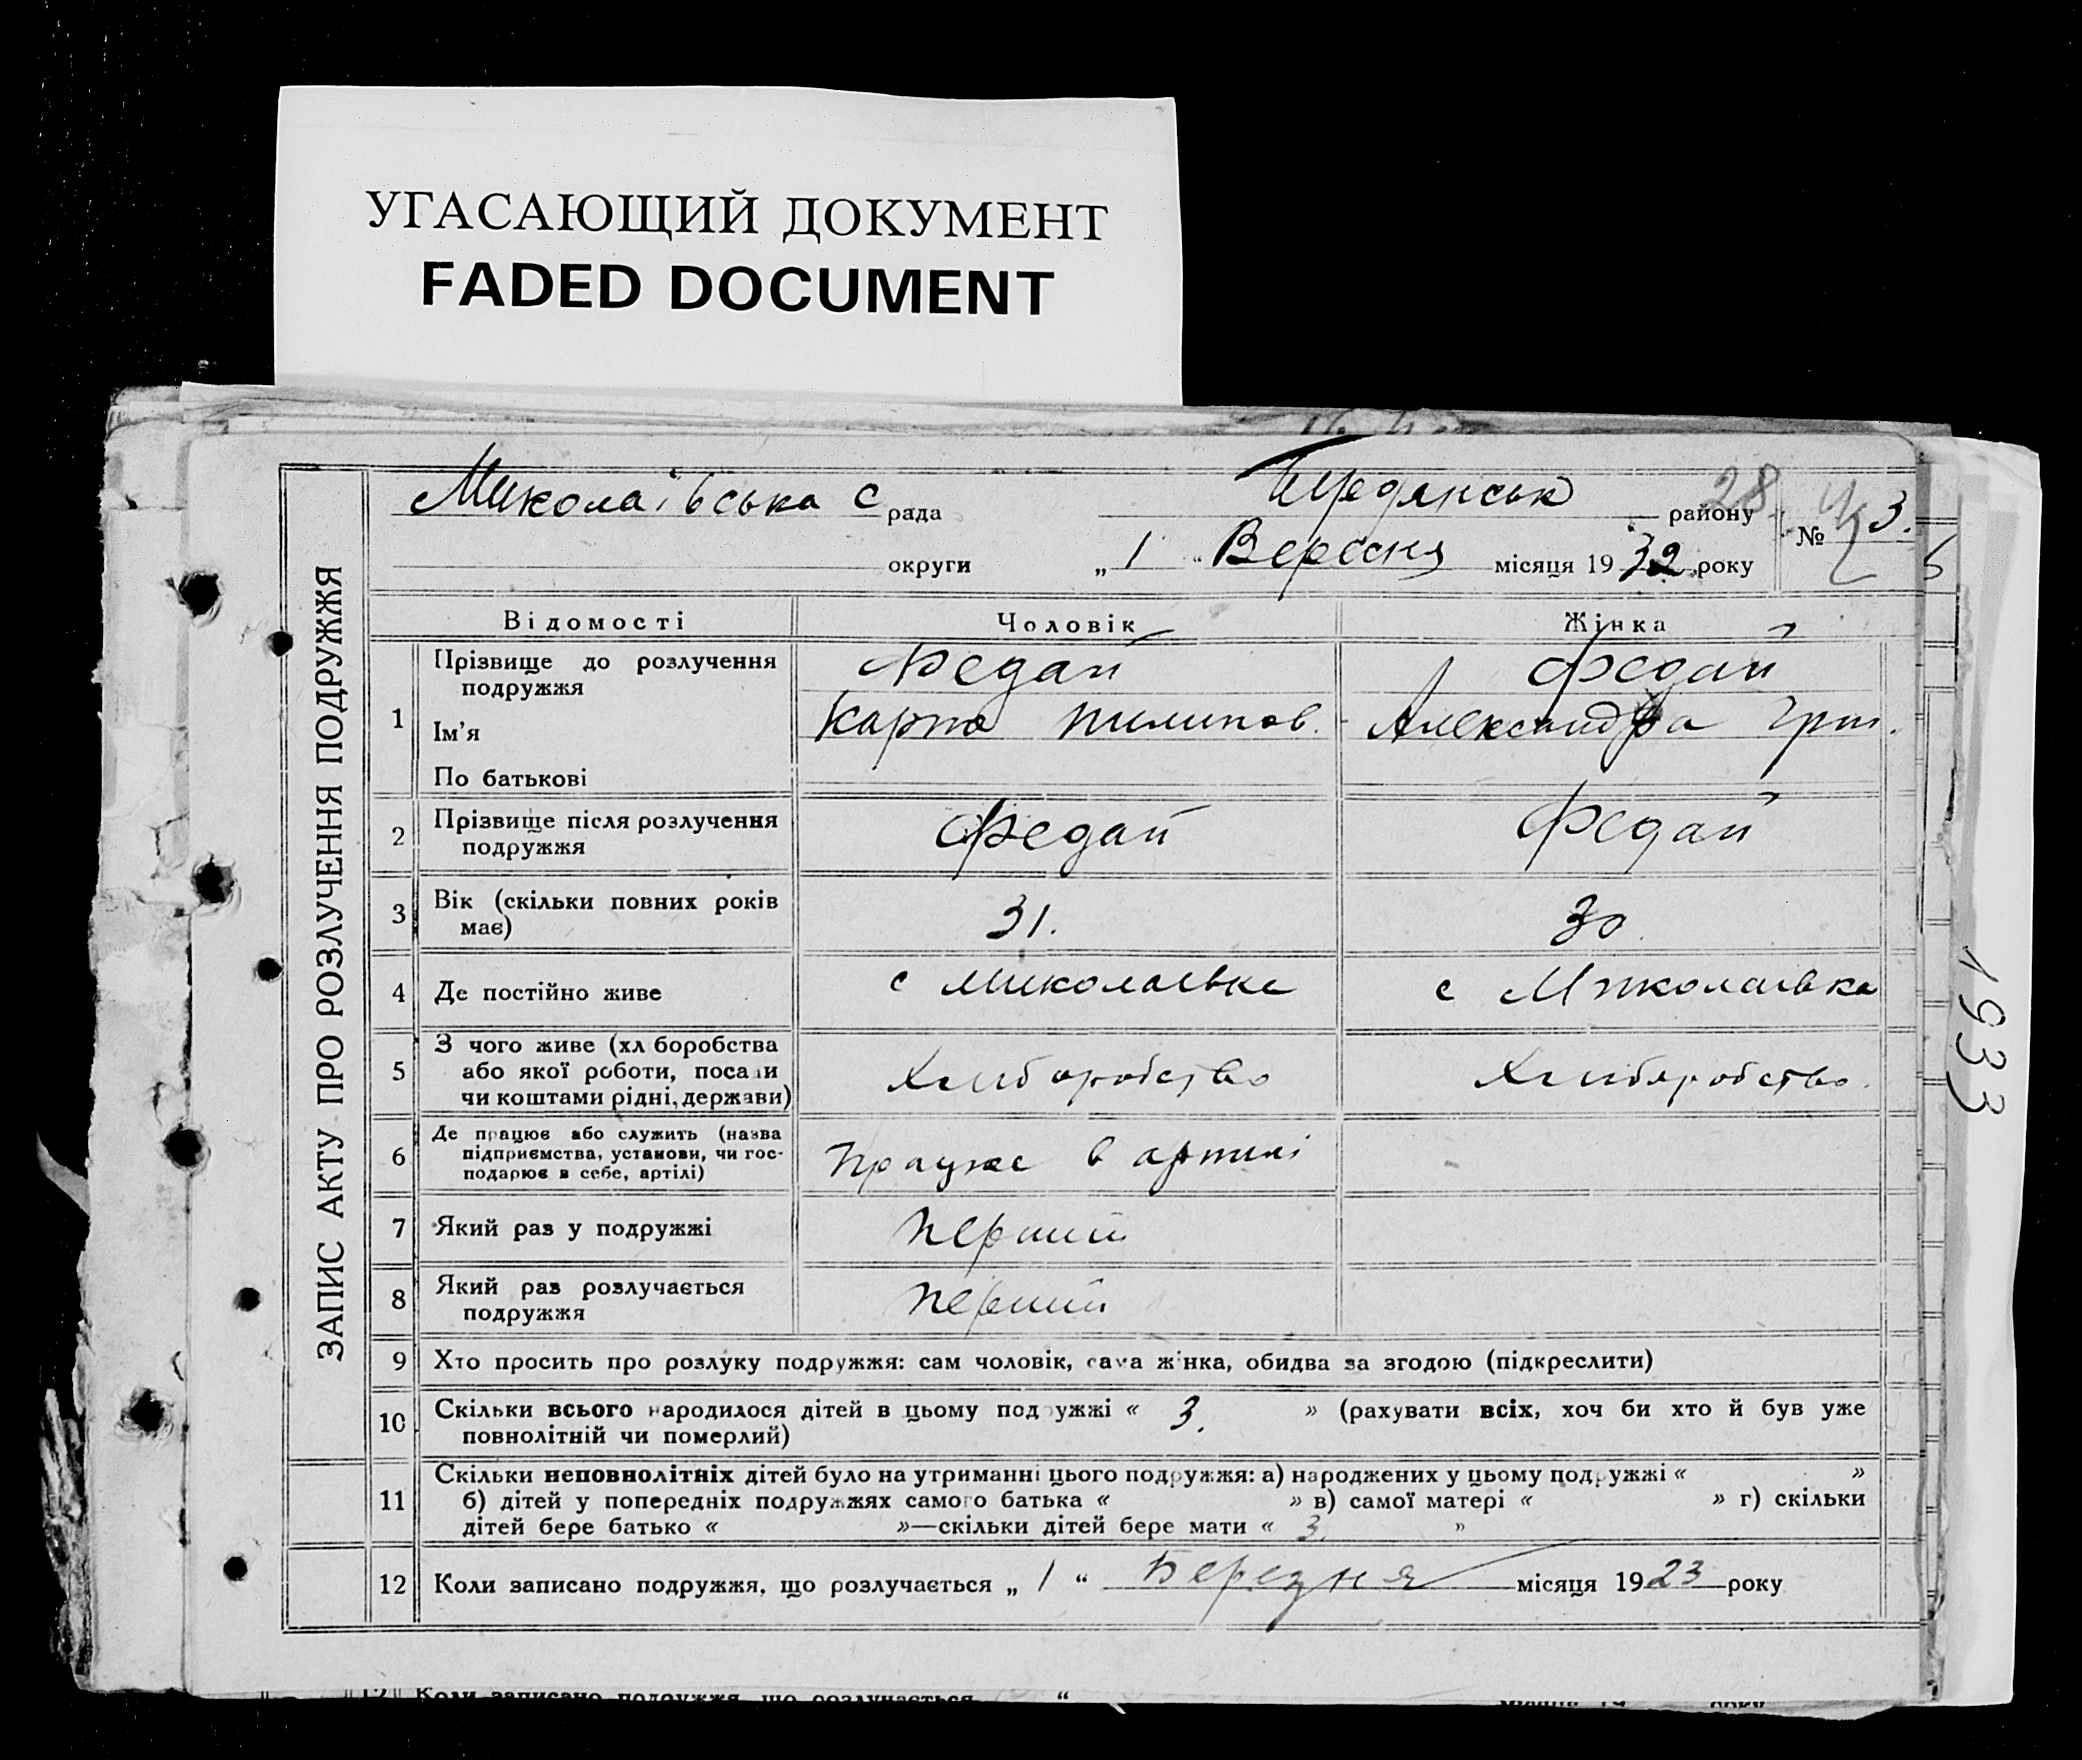 УГАСАЮЩИЙ ДОКУМЕНТ
FADED DOCUMENT
Миколаївська с рада Бердянськ району 28 № 3.
округи „ 1 “ Вересня місяця 1932 року
ЗАПИС АКТУ ПРО РОЗЛУЧЕННЯ ПОДРУЖЖЯ
Відомості Чоловік Жінка
1 Прізвище до розлучення Федай Федай
подружжя
Ім'я Карпо Пилипов. Александра Григ.
По батькові
2 Прізвище після розлучення Федай Федай
подружжя
3 Вік (скільки повних років 31. 30
має)
4 Де постійно живе с Миколаевке с Миколаівка
5 З чого живе (хл боробства Хлиборобство Хлиборобство.
або якої роботи, посади
чи коштами рідні, держави)
6 Де працює або служить (назва Працює в артилі
підприємства, установи, чи гос-
подарює в себе, артілі)
7 Який раз у подружжі Перший
8 Який раз розлучається Перший
подружжя
9 Хто просить про розлуку подружжя: сам чоловік, сама жінка, обидва за згодою (підкреслити)
10 Скільки всього народилося дітей в цьому подружжі « 3. » (рахувати всіх, хоч би хто й був уже
повнолітній чи померлий)
11 Скільки неповнолітніх дітей було на утриманні цього подружжя: а) народжених у цьому подружжі « »
б) дітей у попередніх подружжях самого батька « » в) самої матері « » г) скільки
дітей бере батько « »—скільки дітей бере мати « 3. »
12 Коли записано подружжя, що розлучається „ 1 “ Березня місяця 1923 року
1933
12 Коли записано подружжя, що розлучається “ місяця 19 року